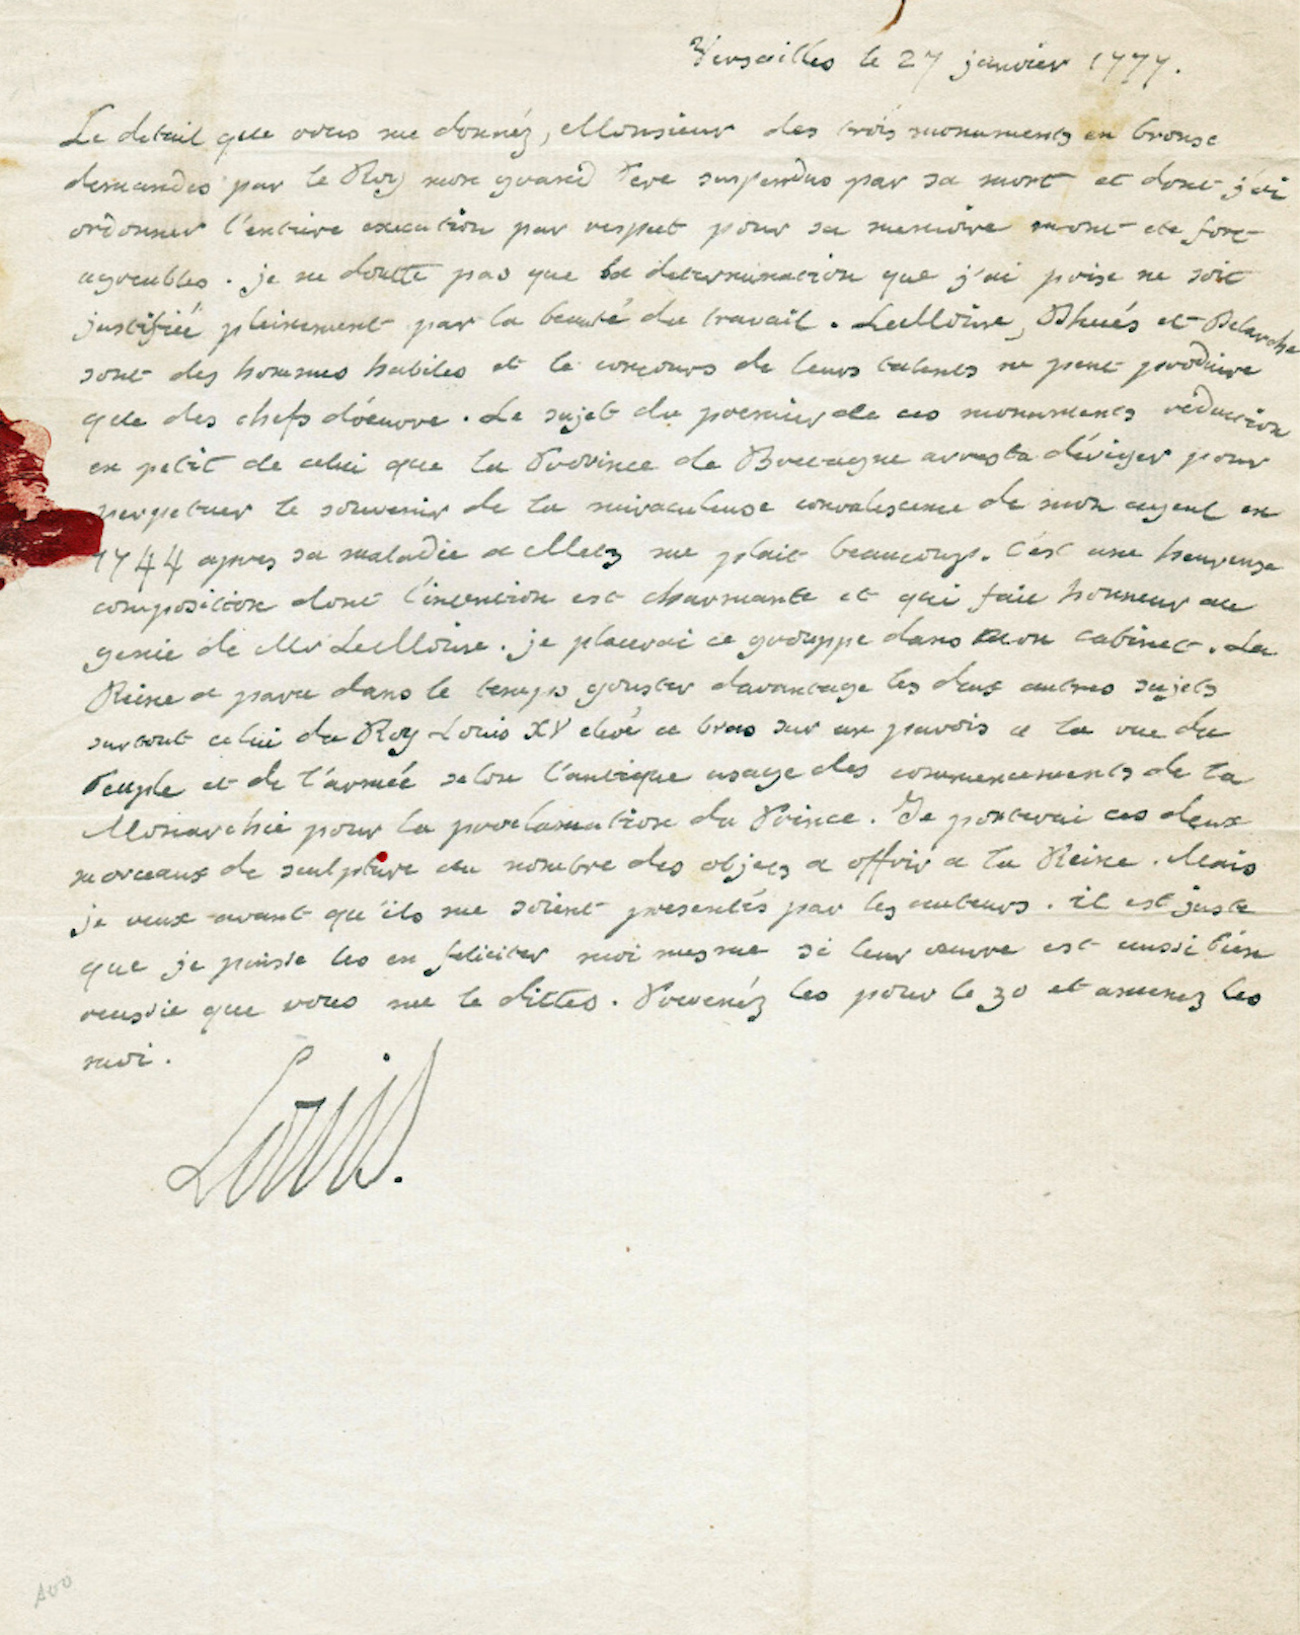 Versailles le 27 janvier 1777.
Le detail que vous me donnéz, Monsieur des trois monuments en bronse
demandés par le Roy mon grand Pere suspendus par sa mort et dont j'ai
ordonner l'entiere execution par respect pour sa memoire m'ont ete fort
agreables. je ne doutte pas que la determination que j'ai prise ne soit
justifiéé pleinement par la beauté du travail. LeMoine, et
sont des hommes habiles et le concours de leurs talents ne peut produire
que des chefs d'oeuvre. Le sujet du premier de ces monuments reduction
en petit de celui que la Province de Bretagne arresta d'ériger pour
perpetuer le souvenir de la miraculeuse convalescence de mon ayeul en
1744 apres sa maladie a Metz me plait beaucoup. C'est une heureuse
composition dont l'intention est charmante et qui fait honneur au
genie de Mr LeMoine. je placerai ce grouppe dans mon cabinet. La
Reine a paru dans le temps gouster davantage les deux autres sujets
surtout celui du Roy Louis XV elevé a bras sur un pavois a la vue du
Peuple et de l'arméé selon l'antique usage des commencements de la
Monarchie pour la proclamation du Prince. Je porterai ces deux
morceaux de sculpture au nombre des objets a offrir a la Reine. Mais
je veux avant qu'ils me soient presentés par les auteurs. il est juste
que je puisse les en feliciter moi mesme si leur oeuvre est aussi bien
reussie que vous me le dittes. Prevenéz les pour le 30 et amenez les
moi.
Louis.